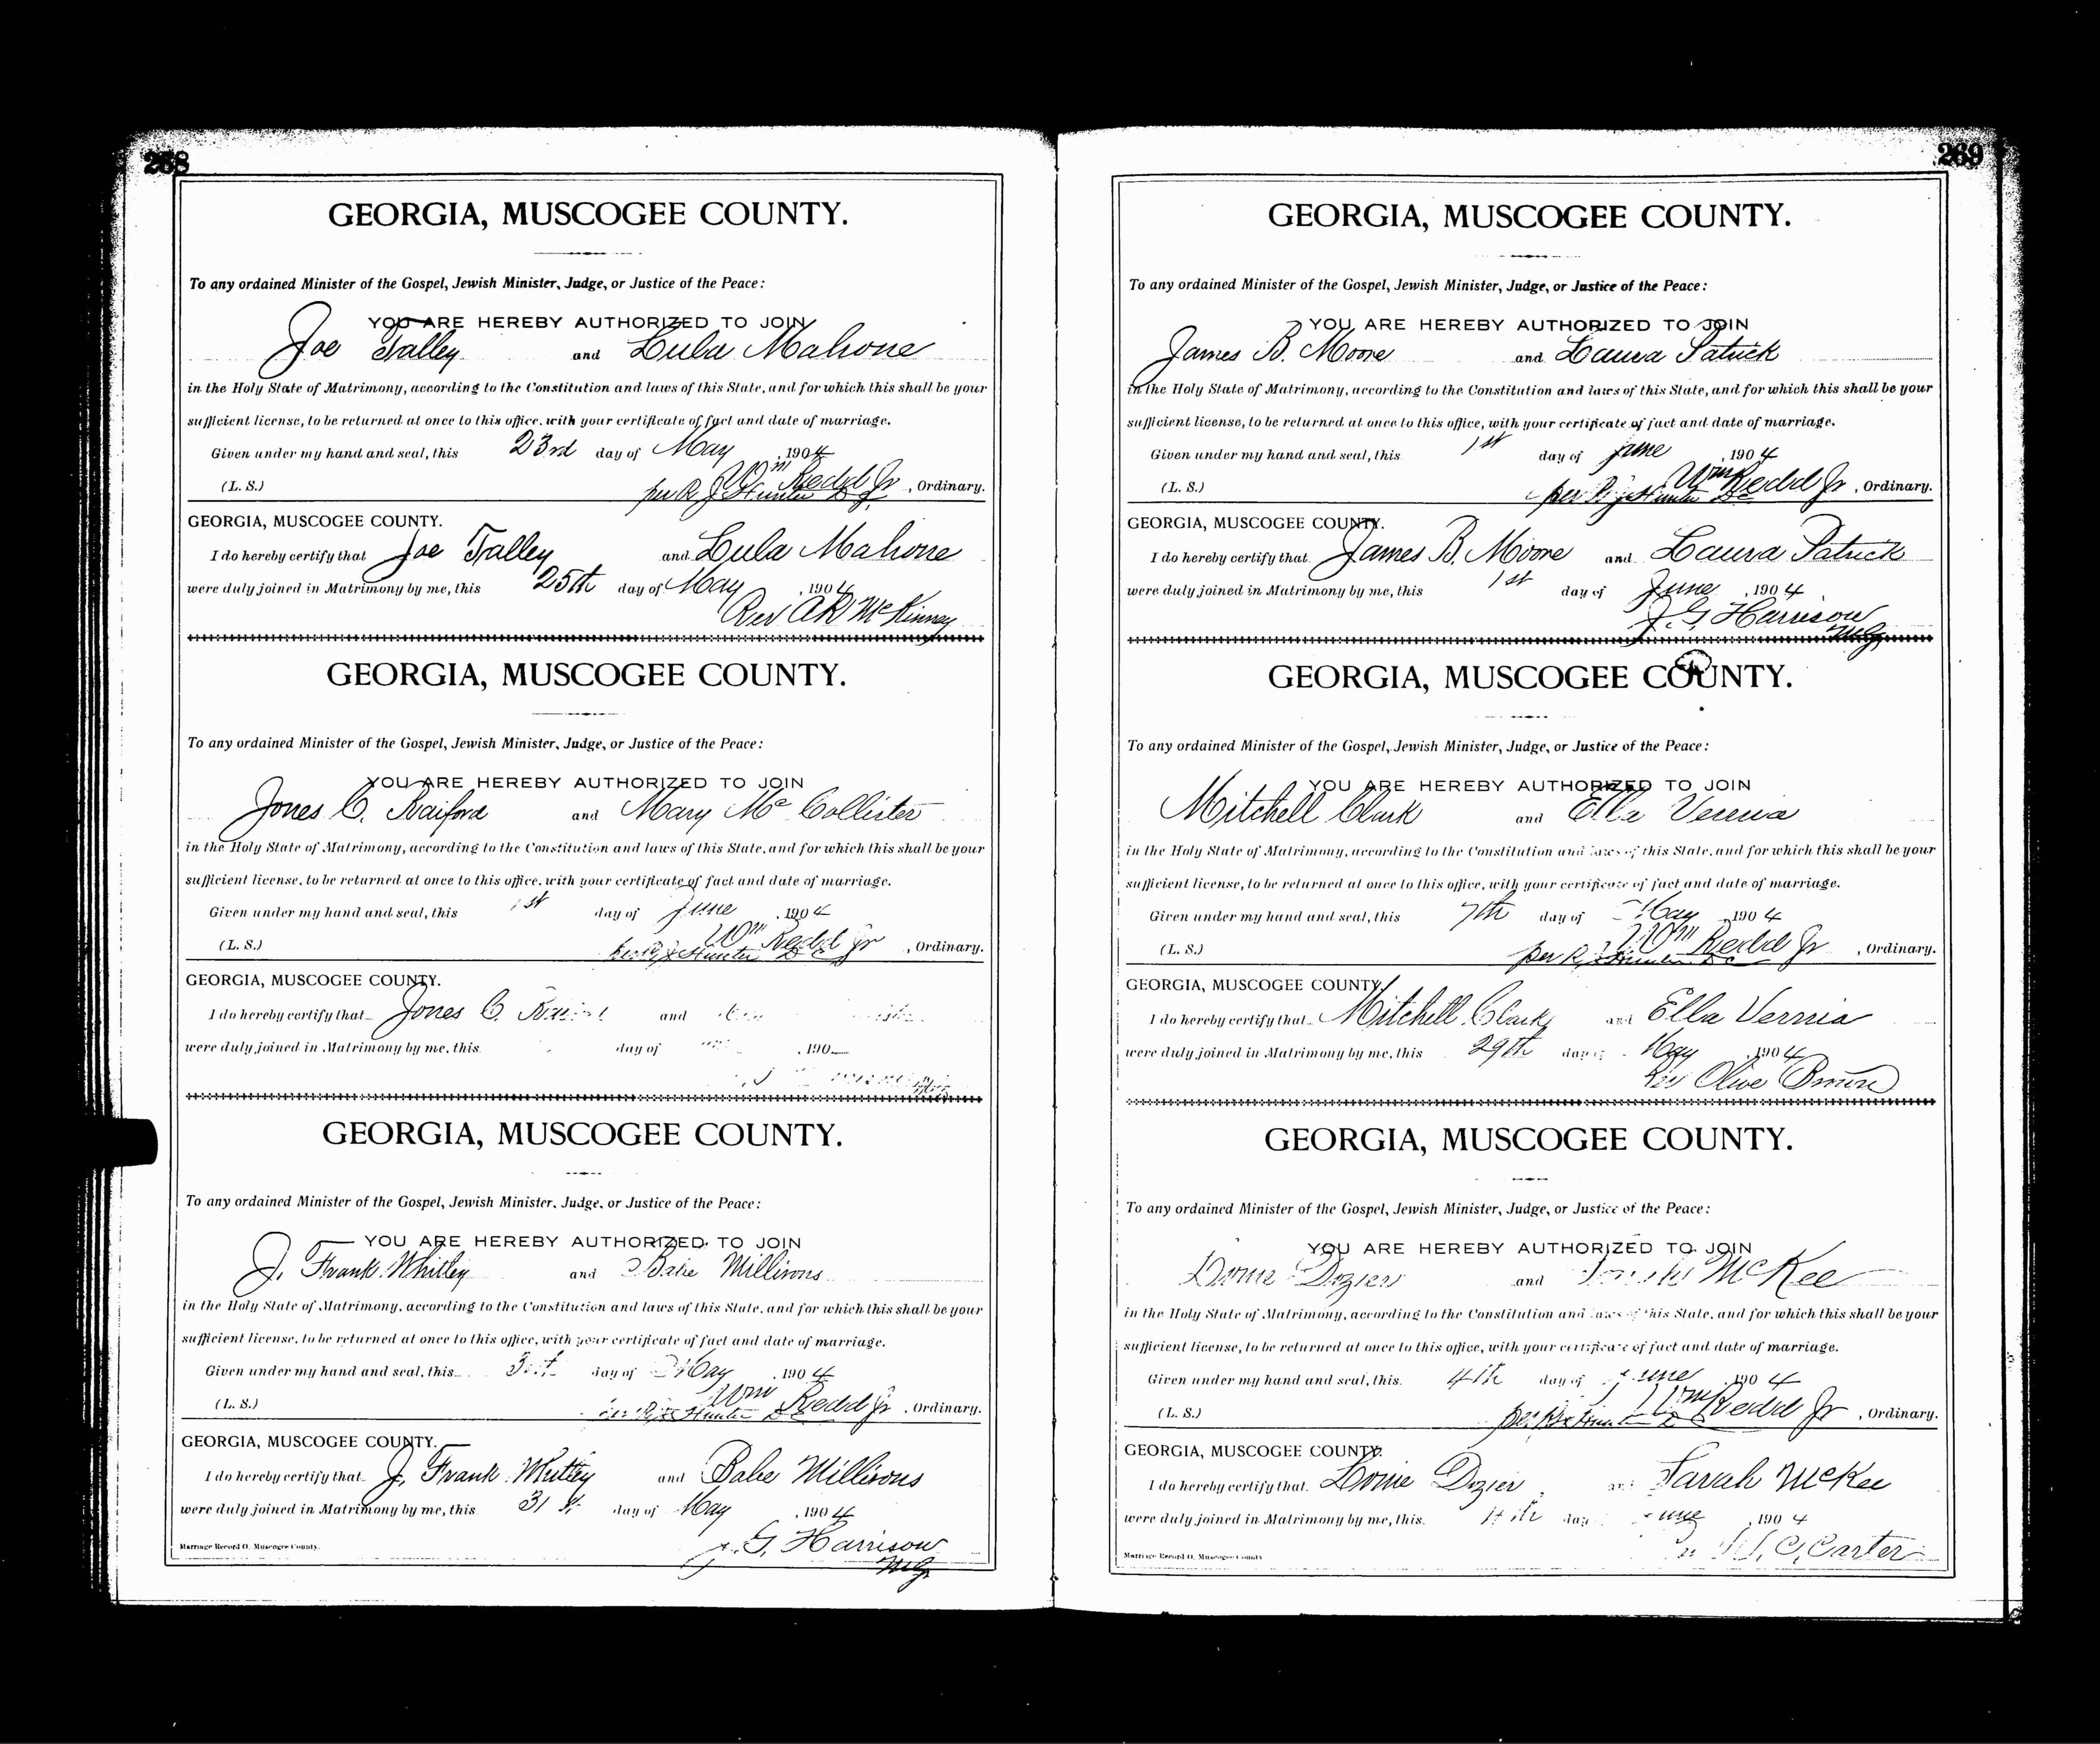 268
GEORGIA, MUSCOGEE COUNTY.
To any ordained Minister of the Gospel, Jewish Minister, Judge, or Justice of the Peace:
YOU ARE HEREBY AUTHORIZED TO JOIN
Joe Talley and Lula Mahone
in the Holy State of Matrimony, according to the Constitution and laws of this State, and for which this shall be your
sufficient license, to be returned at once to this office, with your certificate of fact and date of marriage.
Given under my hand and seal, this 23rd day of May, 1904
(L. S.) Wm Redd Jr, Ordinary.
per R J Hunter D C
GEORGIA, MUSCOGEE COUNTY.
I do hereby certify that Joe Talley and Lula Mahone
were duly joined in Matrimony by me, this 25th day of May, 1904
Rev AR McKinney
GEORGIA, MUSCOGEE COUNTY.
To any ordained Minister of the Gospel, Jewish Minister, Judge, or Justice of the Peace:
YOU ARE HEREBY AUTHORIZED TO JOIN
Jones C. Raiford and Mary Mc Collister
in the Holy State of Matrimony, according to the Constitution and laws of this State, and for which this shall be your
sufficient license, to be returned at once to this office, with your certificate of fact and date of marriage.
Given under my hand and seal, this 1st day of June, 1904
(L. S.) Wm Redd Jr, Ordinary.
per R J Hunter D C
GEORGIA, MUSCOGEE COUNTY.
I do hereby certify that Jones C. and
were duly joined in Matrimony by me, this day of , 190
GEORGIA, MUSCOGEE COUNTY.
To any ordained Minister of the Gospel, Jewish Minister, Judge, or Justice of the Peace:
YOU ARE HEREBY AUTHORIZED TO JOIN
J. Frank Whitley and Babe Millirons
in the Holy State of Matrimony, according to the Constitution and laws of this State, and for which this shall be your
sufficient license, to be returned at once to this office, with your certificate of fact and date of marriage.
Given under my hand and seal, this day of May, 1904
(L. S.) Wm Redd Jr, Ordinary.
per R J Hunter D C
GEORGIA, MUSCOGEE COUNTY.
I do hereby certify that J. Frank Whitley and Babe Millirons
were duly joined in Matrimony by me, this 31st day of May, 1904
J. G. Harrison
Mg
Marriage Record O. Muscogee County.
269
GEORGIA, MUSCOGEE COUNTY.
To any ordained Minister of the Gospel, Jewish Minister, Judge, or Justice of the Peace:
YOU ARE HEREBY AUTHORIZED TO JOIN
James B. Moore and Laura Patrick
in the Holy State of Matrimony, according to the Constitution and laws of this State, and for which this shall be your
sufficient license, to be returned at once to this office, with your certificate of fact and date of marriage.
Given under my hand and seal, this 1st day of June, 1904
(L. S.) Wm Redd Jr, Ordinary.
per R J Hunter D C
GEORGIA, MUSCOGEE COUNTY.
I do hereby certify that James B. Moore and Laura Patrick
were duly joined in Matrimony by me, this 1st day of June, 1904
J. G. Harrison
Mg
GEORGIA, MUSCOGEE COUNTY.
To any ordained Minister of the Gospel, Jewish Minister, Judge, or Justice of the Peace:
YOU ARE HEREBY AUTHORIZED TO JOIN
Mitchell Clark and Ella Vernia
in the Holy State of Matrimony, according to the Constitution and laws of this State, and for which this shall be your
sufficient license, to be returned at once to this office, with your certificate of fact and date of marriage.
Given under my hand and seal, this 7th day of May, 1904
(L. S.) Wm Redd Jr, Ordinary.
per R J Hunter D C
GEORGIA, MUSCOGEE COUNTY.
I do hereby certify that Mitchell Clark and Ella Vernia
were duly joined in Matrimony by me, this 29th day of May, 1904
Rev Olive Brown
GEORGIA, MUSCOGEE COUNTY.
To any ordained Minister of the Gospel, Jewish Minister, Judge, or Justice of the Peace:
YOU ARE HEREBY AUTHORIZED TO JOIN
Dozier and McKee
in the Holy State of Matrimony, according to the Constitution and laws of this State, and for which this shall be your
sufficient license, to be returned at once to this office, with your certificate of fact and date of marriage.
Given under my hand and seal, this 4th day of June, 1904
(L. S.) Wm Redd Jr, Ordinary.
per R J Hunter D C
GEORGIA, MUSCOGEE COUNTY.
I do hereby certify that Dozier and Sarah McKee
were duly joined in Matrimony by me, this day of June, 1904
Carter
Marriage Record O. Muscogee County